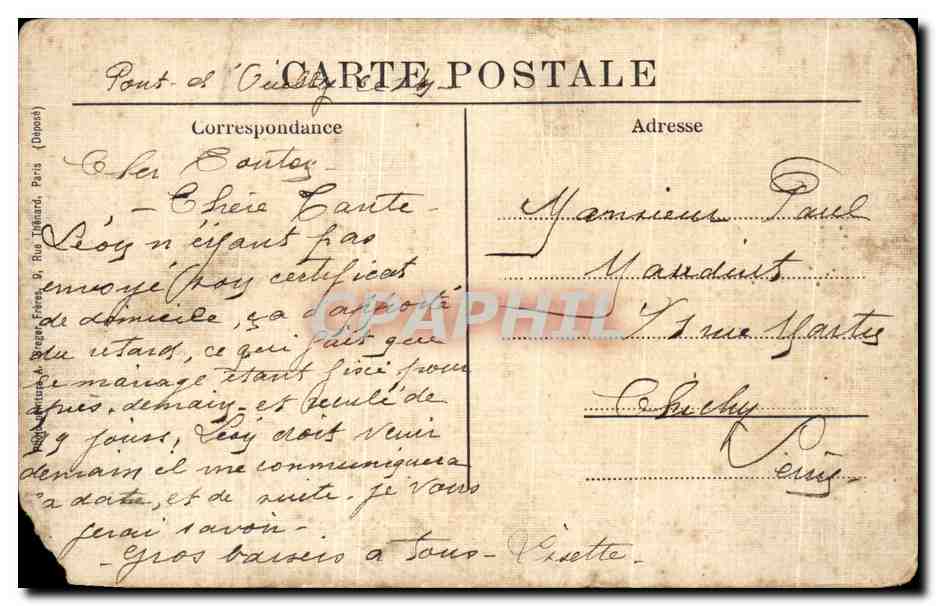 CARTE POSTALE
Pont-d'Ouilly
Correspondance
Adresse
Cher Tonton-
- Chère Tante-
Léon n'ayant pas
envoyé son certificat
de domicile, ça a apporté
du retard, ce qui fait que
le mariage étant fixé pour
après-demain- est reculé de
jours, Léon doit venir
demain il me communiquera
la date, et de suite. je vous
ferai savoir-
Gros baisers à tous-
Monsieur Paul
Mauduit
rue Martre
Clichy
Seine
Frères, 9, Rue Thénard, Paris (Déposé)
CPAPHIL